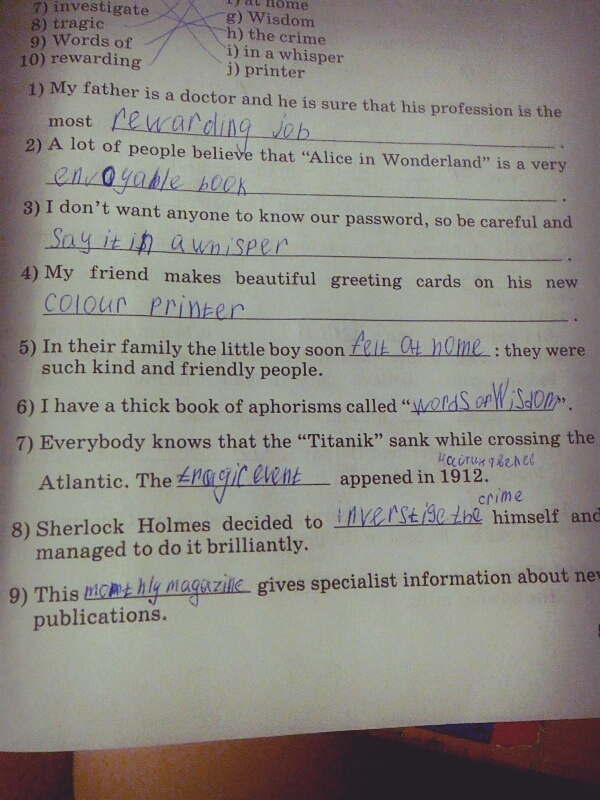 7) investigate
8) tragic
9) Words of
10) rewarding
f) at home
g) Wisdom
h) the crime
i) in a whisper
j) printer
1) My father is a doctor and he is sure that his profession is the
most rewarding job.
2) A lot of people believe that “Alice in Wonderland” is a very
envoyable book.
3) I don’t want anyone to know our password, so be careful and
Say it in a whisper.
4) My friend makes beautiful greeting cards on his new
colour printer.
5) In their family the little boy soon felt at home : they were
such kind and friendly people.
6) I have a thick book of aphorisms called “words of Wisdom”.
7) Everybody knows that the “Titanik” sank while crossing the
Atlantic. The tragic event appened in 1912.
crime
8) Sherlock Holmes decided to inverstige the himself and
managed to do it brilliantly.
9) This monthly magazine gives specialist information about new
publications.